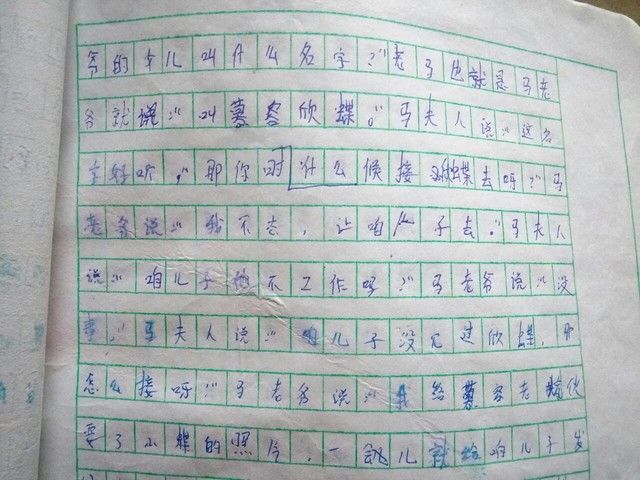 爷的女儿叫什么名字？”老马也就是马老
爷就说：“叫慕容欣蝶。”马夫人说：“这名
字好听，那你时什么候接蝶去呀？”马
老爷说：“我不去，让咱儿子去。”马夫人
说：“咱儿子他不工作吗？”马老爷说：“没
事。”马夫人说：“咱儿子没见过欣蝶，那
怎么接呀？”马老爷说：“我给慕容老伙
要了小蝶的照片，一会儿就给咱儿子发